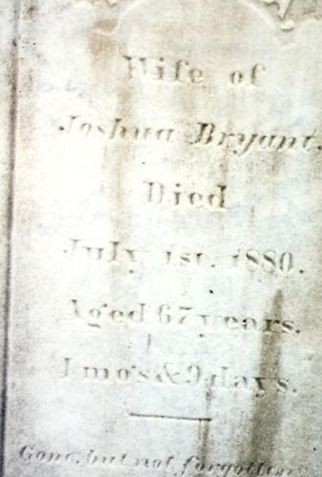 Wife of
Joshua Bryant.
Died
July 1st. 1880.
Aged 67 years.
1 mo's & 9 days.
Gone, but not forgotten